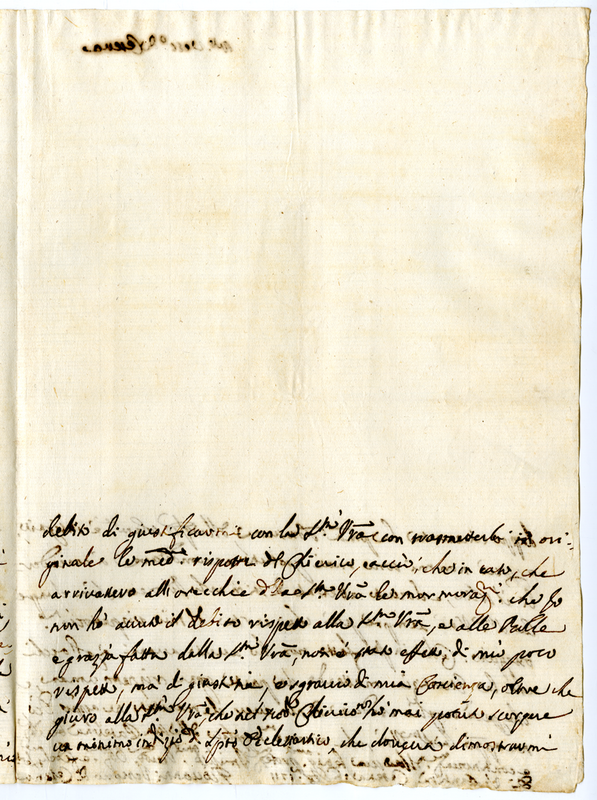 debito di giustificarmi con la S.tà Vrã con trasmetterle in ori-
ginale le med.e risposte del Chierico, acciò, che in caso, che
arrivassero all'orecchie d'la S.tà Vrã le mormoraz.ni che Io
non hò avuto il debito rispetto alla S.tà Vrã, e alle Bolle
e grazia fatta dalla S.tà Vrã, non è stato effetto, di mio poco
rispetto, mà d' giustizia, e sgravio di mia Coscienza, oltre che
giuro alla S.tà Vrã, che nel sud.o Chierico hò mai potuto scorgere
un minimo indizio di Spirito Eclesiastico, che doveva dimostrarmi